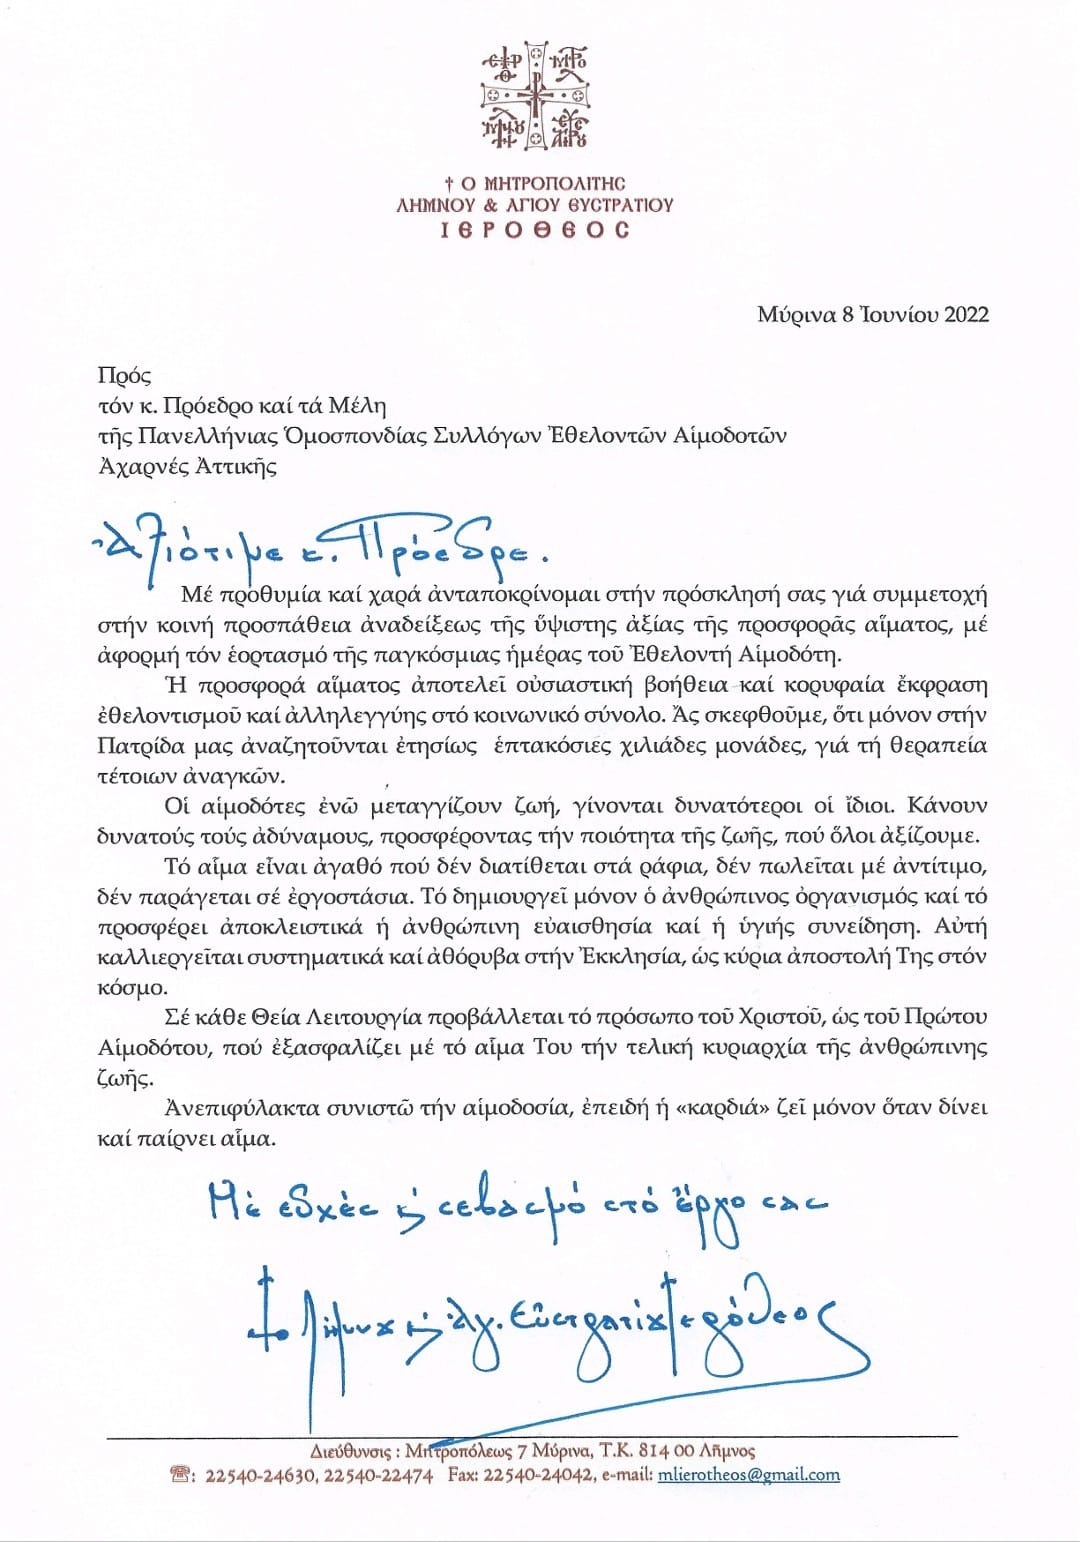 † Ο ΜΗΤΡΟΠΟΛΙΤΗΣ
ΛΗΜΝΟΥ & ΑΓΙΟΥ ΕΥΣΤΡΑΤΙΟΥ
ΙΕΡΟΘΕΟΣ
Μύρινα 8 Ἰουνίου 2022
Πρός
τόν κ. Πρόεδρο καί τά Μέλη
τῆς Πανελλήνιας Ὁμοσπονδίας Συλλόγων Ἐθελοντῶν Αἱμοδοτῶν
Ἀχαρνές Ἀττικῆς
Ἀξιότιμε κ. Πρόεδρε.
Μέ προθυμία καί χαρά ἀνταποκρίνομαι στήν πρόσκλησή σας γιά συμμετοχή
στήν κοινή προσπάθεια ἀναδείξεως τῆς ὕψιστης ἀξίας τῆς προσφορᾶς αἵματος, μέ
ἀφορμή τόν ἑορτασμό τῆς παγκόσμιας ἡμέρας τοῦ Ἐθελοντή Αἱμοδότη.
Ἡ προσφορά αἵματος ἀποτελεῖ οὐσιαστική βοήθεια καί κορυφαία ἔκφραση
ἐθελοντισμοῦ καί ἀλληλεγγύης στό κοινωνικό σύνολο. Ἄς σκεφθοῦμε, ὅτι μόνον στήν
Πατρίδα μας ἀναζητοῦνται ἐτησίως ἑπτακόσιες χιλιάδες μονάδες, γιά τή θεραπεία
τέτοιων ἀναγκῶν.
Οἱ αἱμοδότες ἐνῶ μεταγγίζουν ζωή, γίνονται δυνατότεροι οἱ ἴδιοι. Κάνουν
δυνατούς τούς ἀδύναμους, προσφέροντας τήν ποιότητα τῆς ζωῆς, πού ὅλοι ἀξίζουμε.
Τό αἷμα εἶναι ἀγαθό πού δέν διατίθεται στά ράφια, δέν πωλεῖται μέ ἀντίτιμο,
δέν παράγεται σέ ἐργοστάσια. Τό δημιουργεῖ μόνον ὁ ἀνθρώπινος ὀργανισμός καί τό
προσφέρει ἀποκλειστικά ἡ ἀνθρώπινη εὐαισθησία καί ἡ ὑγιής συνείδηση. Αὐτή
καλλιεργεῖται συστηματικά καί ἀθόρυβα στήν Ἐκκλησία, ὡς κύρια ἀποστολή Της στόν
κόσμο.
Σέ κάθε Θεία Λειτουργία προβάλλεται τό πρόσωπο τοῦ Χριστοῦ, ὡς τοῦ Πρώτου
Αἱμοδότου, πού ἐξασφαλίζει μέ τό αἷμα Του τήν τελική κυριαρχία τῆς ἀνθρώπινης
ζωῆς.
Ἀνεπιφύλακτα συνιστῶ τήν αἱμοδοσία, ἐπειδή ἡ «καρδιά» ζεῖ μόνον ὅταν δίνει
καί παίρνει αἷμα.
Μέ εὐχές ϗ σεβασμό στό ἔργο σας
† ὁ Λήμνου ϗ Ἁγ. Εὐστρατίου Ἱερόθεος
Διεύθυνσις : Μητροπόλεως 7 Μύρινα, Τ.Κ. 814 00 Λῆμνος
☎: 22540-24630, 22540-22474 Fax: 22540-24042, e-mail: mlierotheos@gmail.com